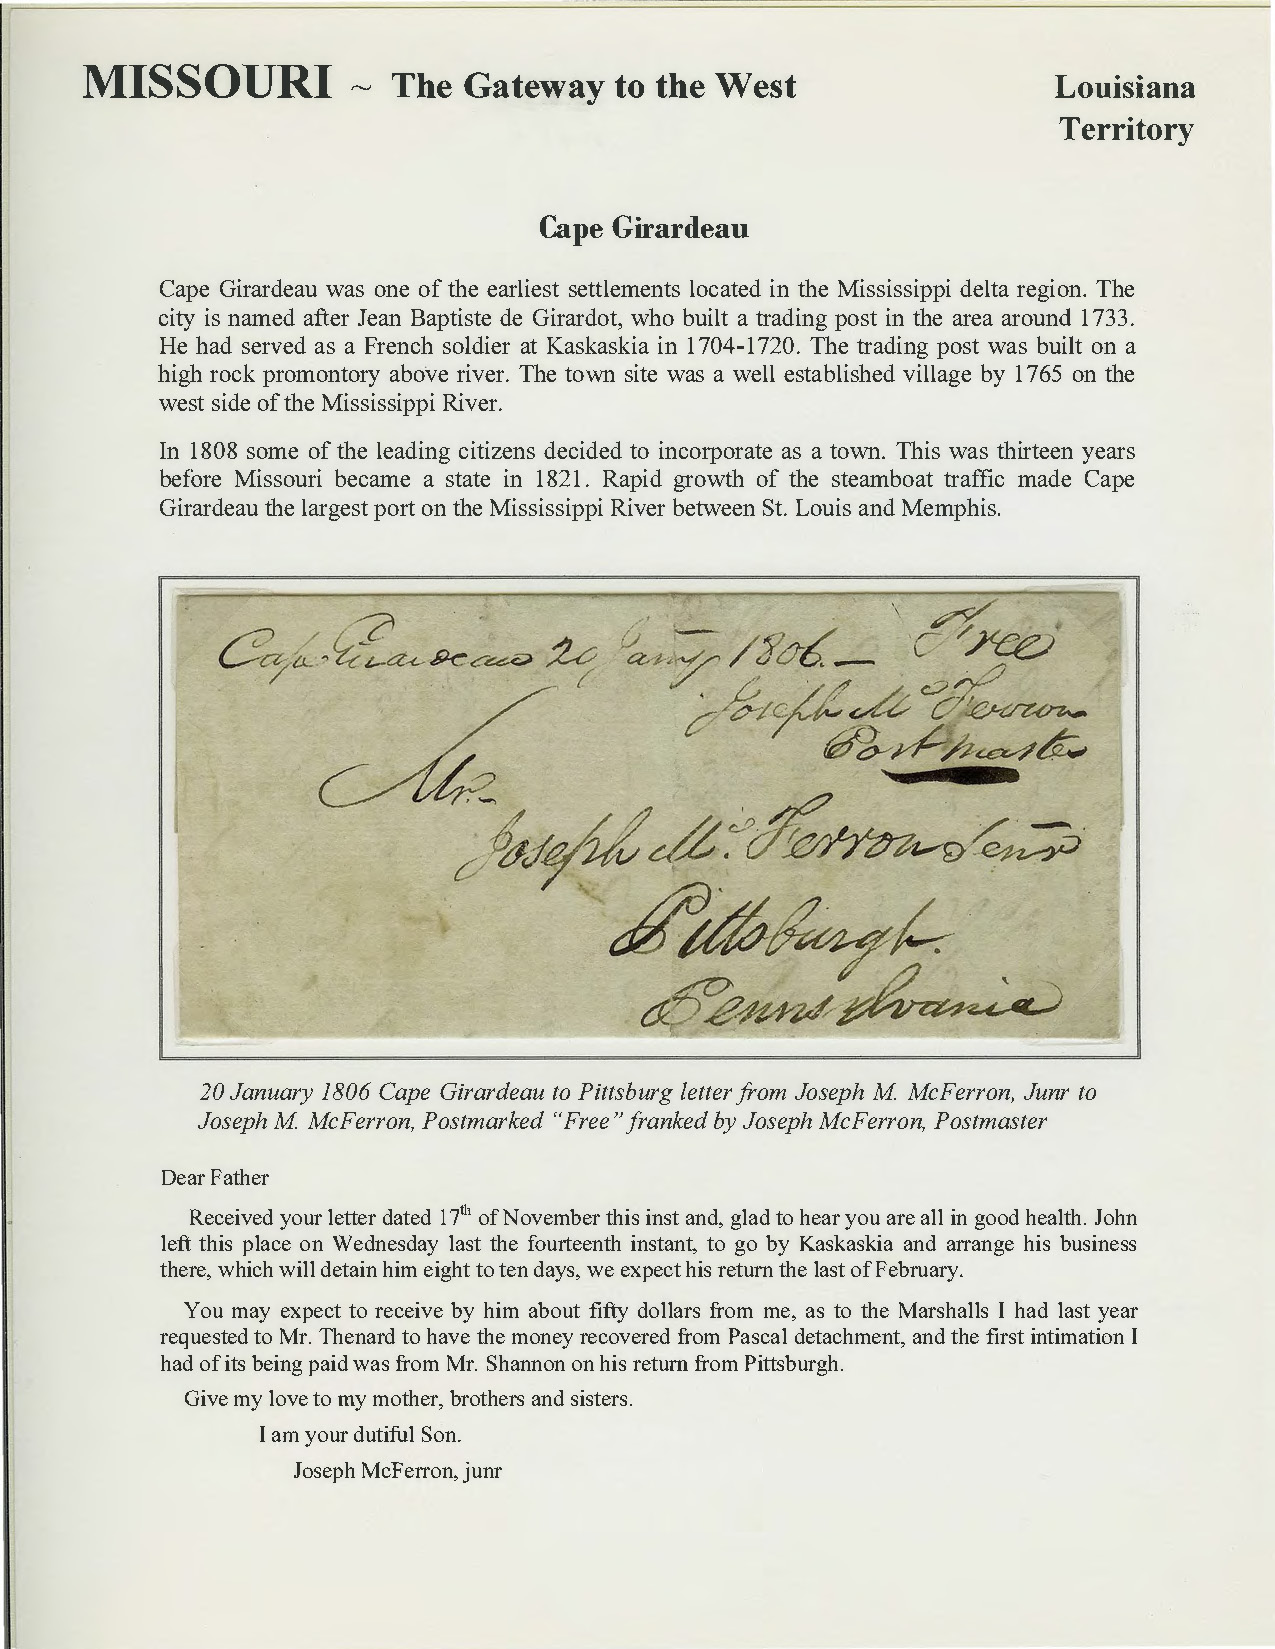 MISSOURI ~ The Gateway to the West
Louisiana
Territory
Cape Girardeau
Cape Girardeau was one of the earliest settlements located in the Mississippi delta region. The
city is named after Jean Baptiste de Girardot, who built a trading post in the area around 1733.
He had served as a French soldier at Kaskaskia in 1704-1720. The trading post was built on a
high rock promontory above river. The town site was a well established village by 1765 on the
west side of the Mississippi River.
In 1808 some of the leading citizens decided to incorporate as a town. This was thirteen years
before Missouri became a state in 1821. Rapid growth of the steamboat traffic made Cape
Girardeau the largest port on the Mississippi River between St. Louis and Memphis.
Cape Girardeau 20 Jany 1806. — Free
Joseph McFerron
Postmaster
Mr.
Joseph Mc. Ferron Senr
Pittsburgh.
Pennsylvania
20 January 1806 Cape Girardeau to Pittsburg letter from Joseph M. McFerron, Junr to
Joseph M. McFerron, Postmarked "Free" franked by Joseph McFerron, Postmaster
Dear Father
Received your letter dated 17th of November this inst and, glad to hear you are all in good health. John
left this place on Wednesday last the fourteenth instant, to go by Kaskaskia and arrange his business
there, which will detain him eight to ten days, we expect his return the last of February.
You may expect to receive by him about fifty dollars from me, as to the Marshalls I had last year
requested to Mr. Thenard to have the money recovered from Pascal detachment, and the first intimation I
had of its being paid was from Mr. Shannon on his return from Pittsburgh.
Give my love to my mother, brothers and sisters.
I am your dutiful Son.
Joseph McFerron, junr